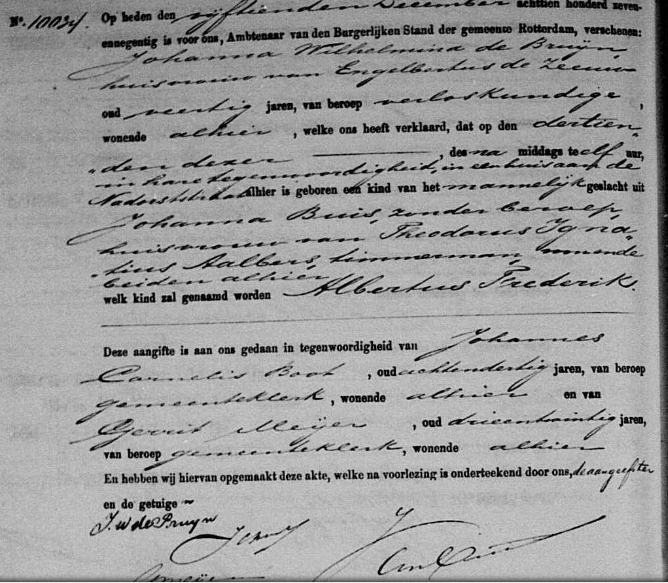 No. 10034. Op heden den vijftienden December achttien honderd zeven-
ennegentig is voor ons, Ambtenaar van den Burgerlijken Stand der gemeente Rotterdam, verschenen:
Johanna Wilhelmina de Bruijn
huisvrouw van Engelbertus de Zeeuw
oud veertig jaren, van beroep verloskundige,
wonende alhier, welke ons heeft verklaard, dat op den dertien-
den dezer, des na middags te elf uur,
in hare tegenwoordigheid, in een huis aan de
alhier is geboren een kind van het mannelijk geslacht uit
Johanna Buis, zonder beroep,
huisvrouw van Theodorus Igna-
tius Aalbers, timmerman, wonende
beiden alhier
welk kind zal genaamd worden Albertus Frederik.
Deze aangifte is aan ons gedaan in tegenwoordigheid van Johannes
Cornelis Boot, oud achtendertig jaren, van beroep
gemeenteklerk, wonende alhier en van
Gerrit Meijer, oud drieentwintig jaren,
van beroep gemeenteklerk, wonende alhier
En hebben wij hiervan opgemaakt deze akte, welke na voorlezing is onderteekend door ons, de aangeefster
en de getuigen
J. W. de Bruijn